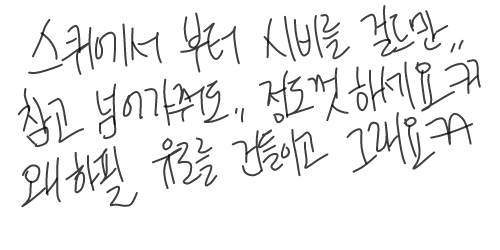 스퀘에서 부터 시비를 걸드만,,
참고 넘어가줘도,, 정도껏 하세요ㅋㅋ
왜 하필 유르를 건들이고 그래요ㅋㅋ